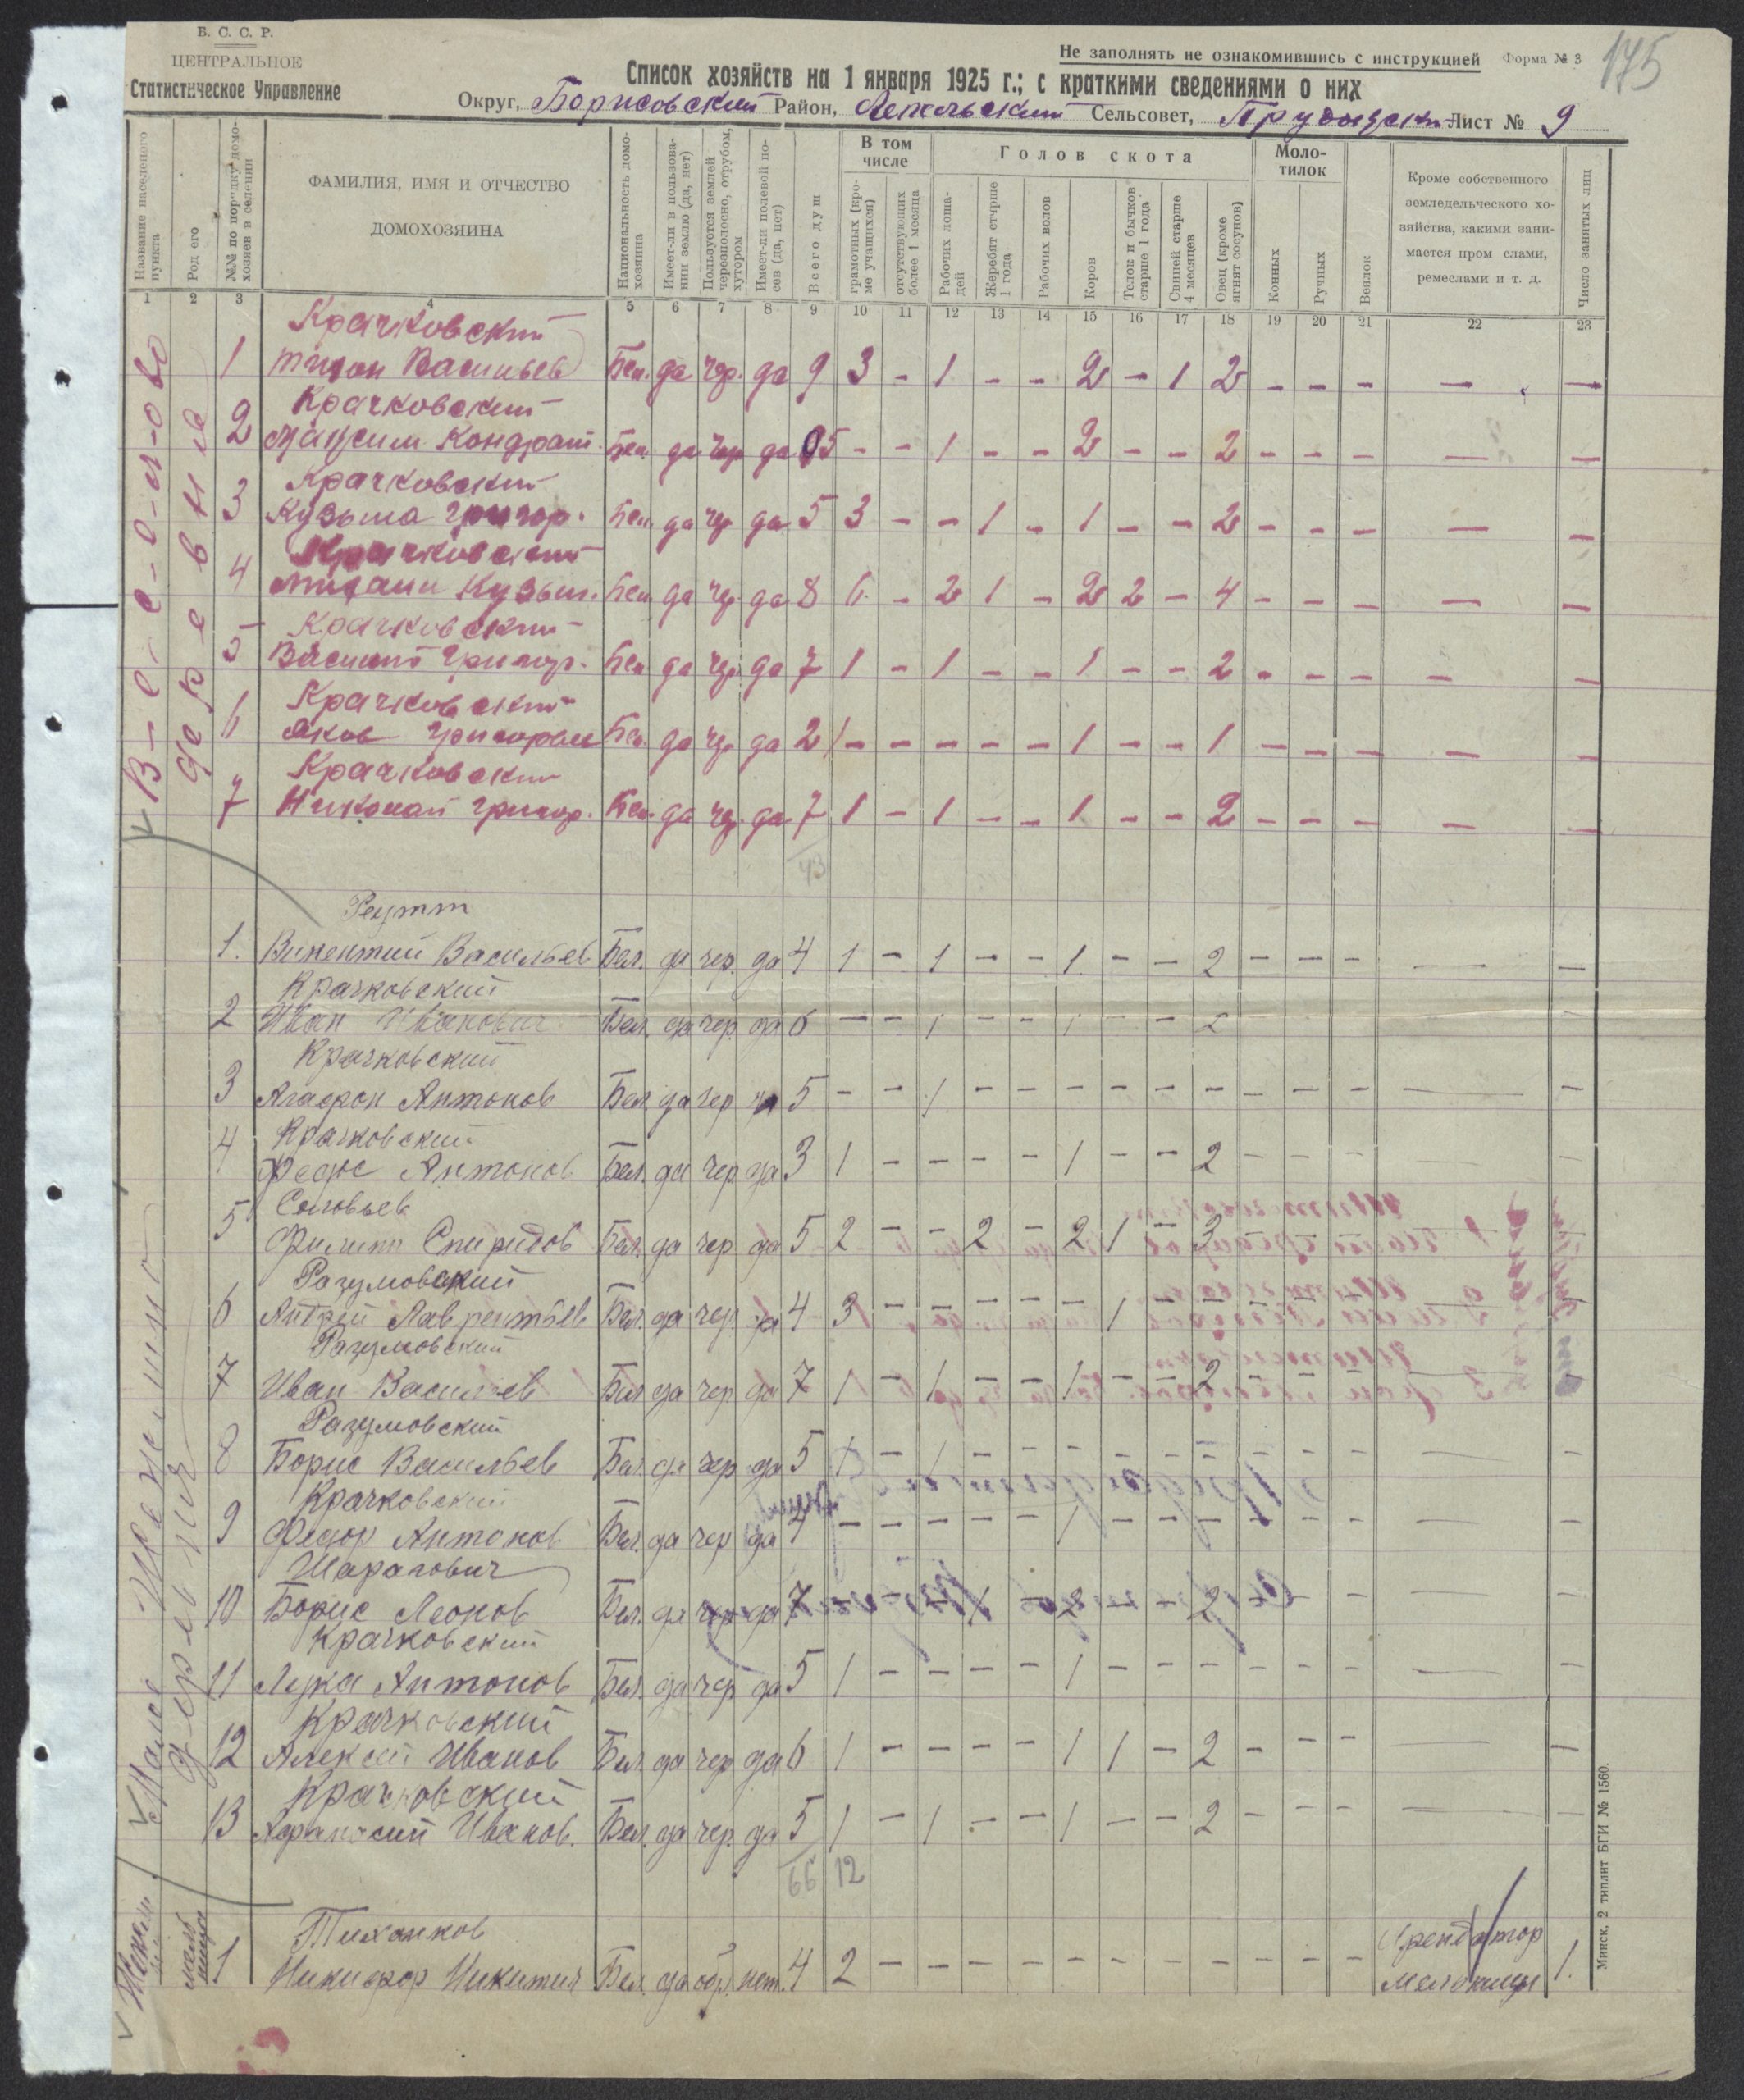 В. С. С. Р.
ЦЕНТРАЛЬНОЕ
Статистическое Управление
Не заполнять не ознакомившись с инструкцией Форма № 3
175
Список хозяйств на 1 января 1925 г.; с краткими сведениями о них
Округ, Борисовский Район, Лепельский Сельсовет, Лист № 9
Название населенного пункта
Род его
№№ по порядку домохозяев в селении
ФАМИЛИЯ, ИМЯ И ОТЧЕСТВО ДОМОХОЗЯИНА
Национальность домохозяина
Имеет-ли в пользовании землю (да, нет)
Пользуется землей черезполосно, отрубом, хутором
Имеет-ли полевой посев (да, нет)
Всего душ
В том числе
грамотных (кроме учащихся)
отсутствующих более 1 месяца
Голов скота
Рабочих лошадей
Жеребят стчрше 1 года
Рабочих волов
Коров
Телок и бычков старше 1 года
Свиней старше 4 месяцев
Овец (кроме ягнят сосунов)
Молотилок
Конных
Ручных
Веялок
Кроме собственного земледельческого хозяйства, какими занимается пром слами, ремеслами и т. д.
Число занятых лиц
1 2 3 4 5 6 7 8 9 10 11 12 13 14 15 16 17 18 19 20 21 22 23
деревня
Крачковский
1 Васильев Бел. да чер. да 9 3 - 1 - - 2 - 1 2 - - - - -
Крачковский
2 Максим Кондрат. Бел. да чер да 5 - - 1 - - 2 - - 2 - - - - -
Крачковский
3 Кузьма Григор. Бел. да чер да 5 3 - - 1 - 1 - - 2 - - - - -
Крачковский
4 Кузьм. Бел. да чер. да 8 6 - 2 1 - 2 2 - 4 - - - - -
Крачковский
5 Василий Григор. Бел. да чер. да 7 1 - 1 - - 1 - - 2 - - - - -
Крачковский
6 Яков Бел. да чер да 2 1 - - - - - 1 - - 1 - - - - -
Крачковский
7 Николай Григор. Бел. да чер. да 7 1 - 1 - - 1 - - 2 - - - - -
43
деревня
Реутт
1. Викентий Васильев Бел. да чер. да 4 1 - 1 - - 1 - - 2 - - - - -
Крачковский
2 Иван Иванович Бел. да чер. да 6 - - 1 - - 1 - - 2
Крачковский
3 Агафон Антонов Бел. да чер 5 - - 1 - - - - - - - - - - -
Крачковский
4 Антонов Бел. да чер да 3 1 - - - - 1 - - 2 - - - - -
Соловьев
5 Филипп Спиридов Бел. да чер да 5 2 - - 2 - 2 1 - 3
Разумовский
6 Лаврентьев Бел. да чер. да 4 3 - - - - - 1 - - - - -
Разумовский
7 Иван Васильев Бел да чер да 7 1 - 1 - - 1 - - 2 - - -
Разумовский
8 Борис Васильев Бел. да чер да 5 1 - 1 - - - - - - - - - - -
Крачковский
9 Федор Антонов Бел. да чер да 4 - - - - - 1 - - - - - - - -
Шарагович
10 Борис Леонов Бел. да чер да 7 1 - 2 - - 2 - - - - -
Крачковский
11 Лука Антонов Бел. да чер да 5 1 - - - - 1 - - - - - - - -
Крачковский
12 Алексей Иванов Бел. да чер да 6 1 - - - - 1 1 - 2 - - - - -
Крачковский
13 Афанасий Иванов. Бел. да чер. да 5 1 - 1 - - 1 - - 2 - - - - -
66 12
мельница
Тиханков
1 Никифор Никитин Бел. да нет. 4 2 - - - - - - - - - - - Арендатор мельницы 1.
Минск, 2 типлит БГИ № 1560.